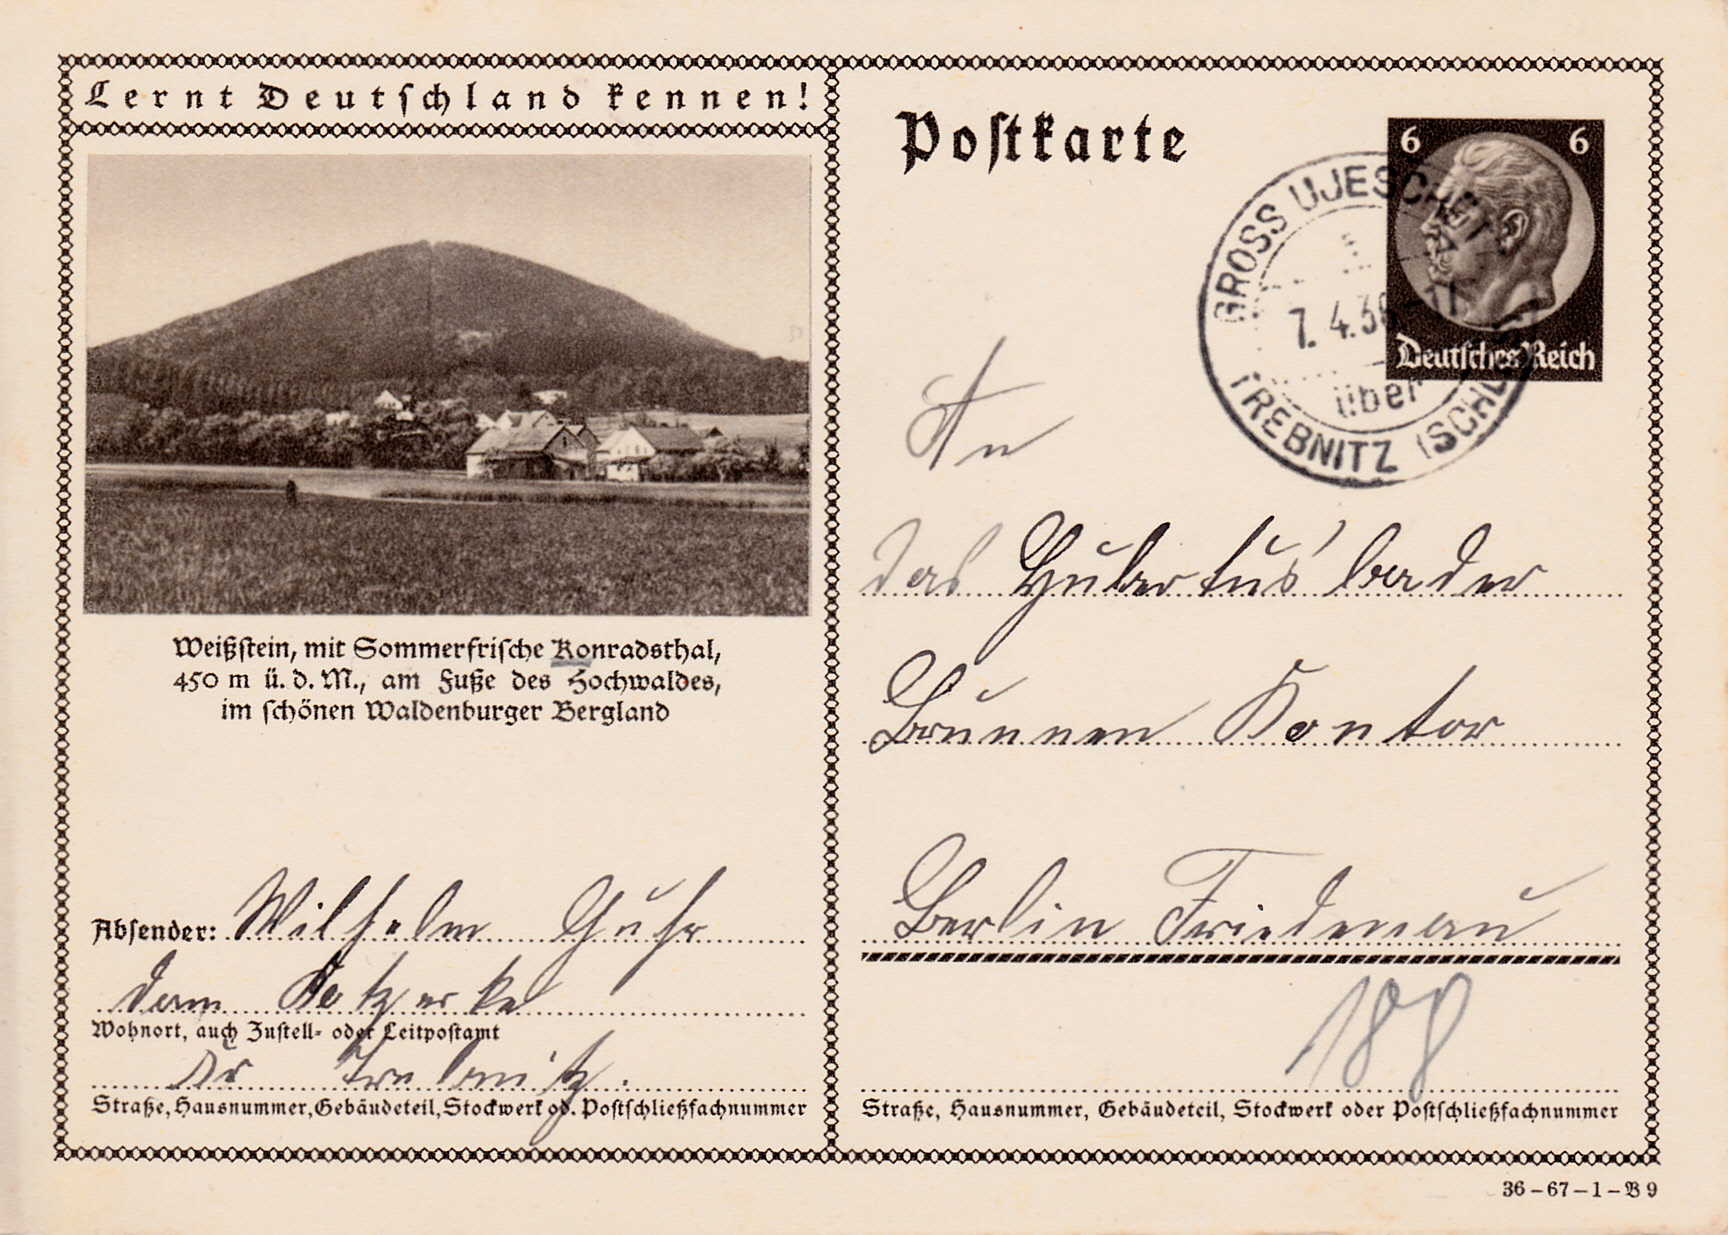 Lernt Deutschland kennen!
Weißstein, mit Sommerfrische Konradsthal,
450 m ü. d. M., am Fuße des Hochwaldes,
im schönen Waldenburger Bergland
Absender: Wilhelm Guhr
Dom Kotzerke
Wohnort, auch Zustell- oder Leitpostamt
Kr Trebnitz.
Straße, Hausnummer, Gebäudeteil, Stockwerk od. Postschließfachnummer
Postkarte
6 6
Deutsches Reich
GROSS UJESCHÜTZ
7. 4. 36
über
TREBNITZ (SCHL
An
das Hubertus bader
Brunnen Kontor
Berlin Friedenau
188
Straße, Hausnummer, Gebäudeteil, Stockwerk oder Postschließfachnummer
36-67-1-B 9